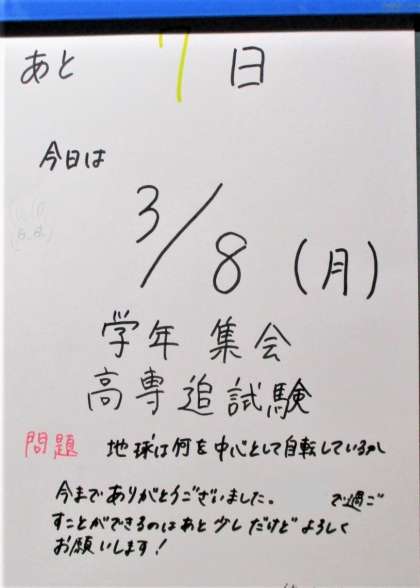 あと 7 日
今日は
3/8 (月)
学年 集会
高専追試験
問題 地球は何を中心として自転しているか
今まであ りがとうございました。 で過ご
すことができるのはあと少しだけどよろしく
お願いします!